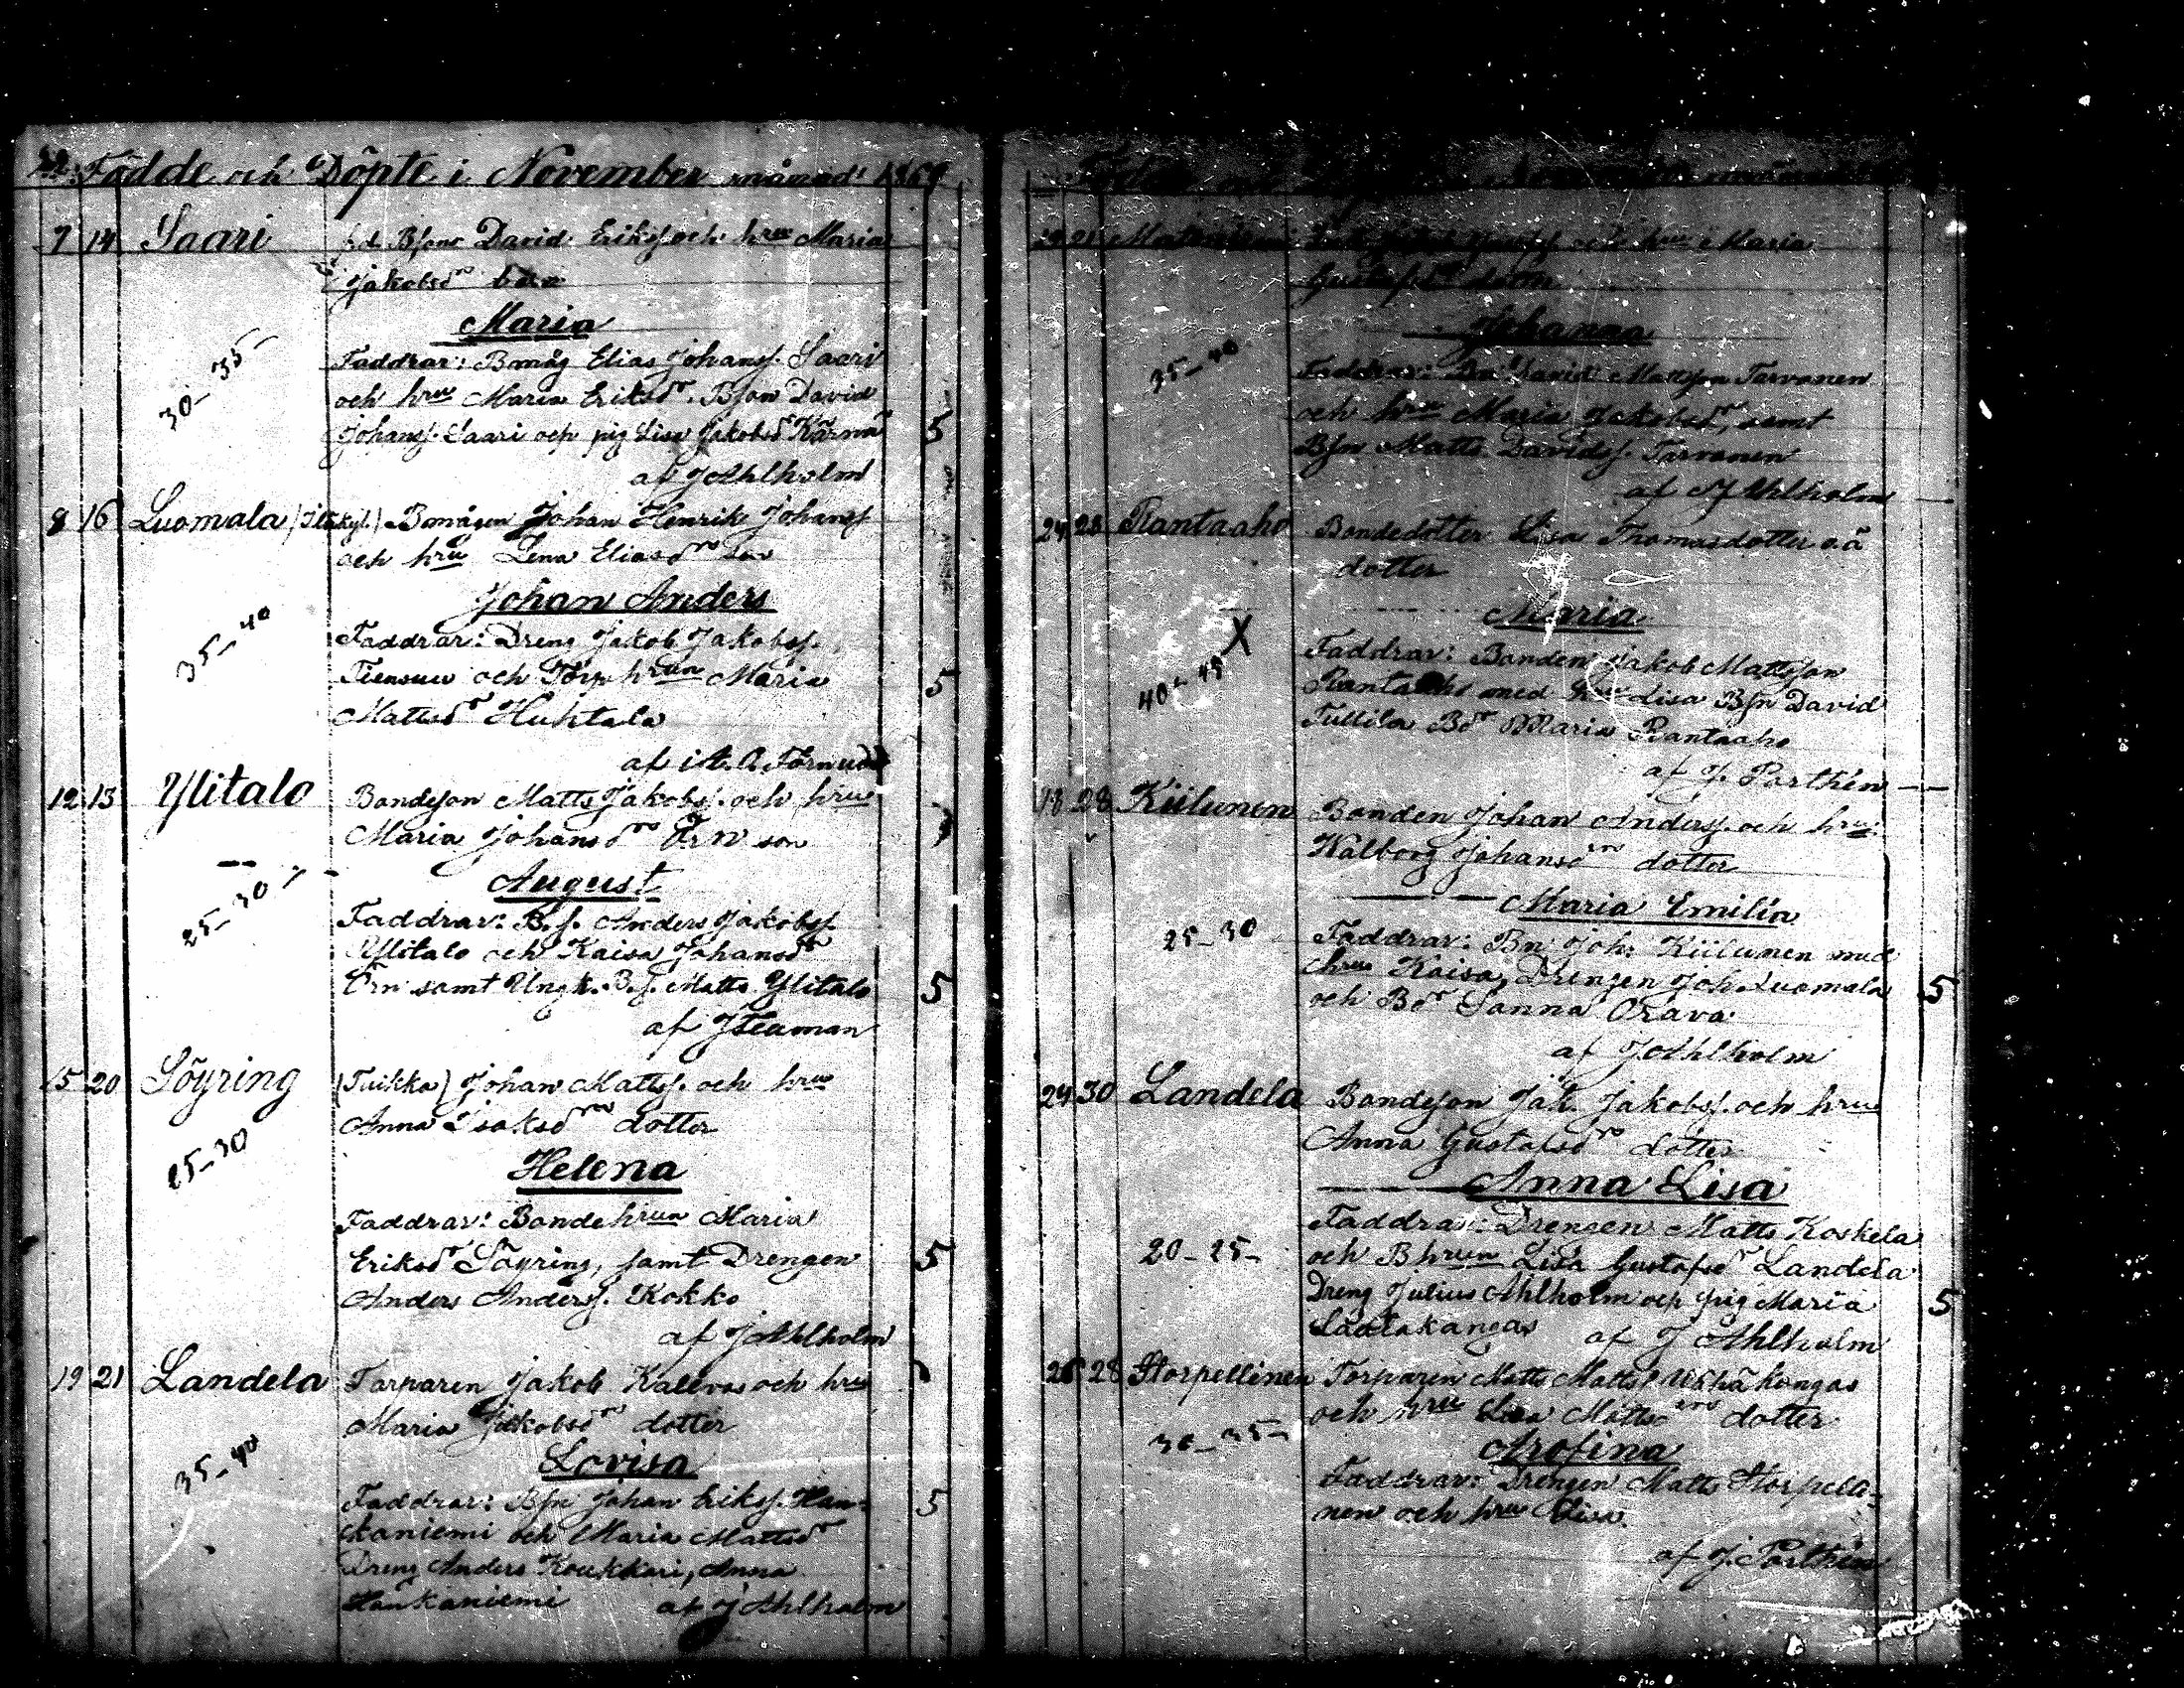 Födde och Döpte i November månad 1869
7 14 Saari f.d. Bson David Eriks. och hru Maria
Jakobsdr barn
Maria
30-35- Faddrar: Bmåg Elias Johanss. Saari
och hru Maria Eriksdr. Bson David
Johanss. Saari och pig Lisa Jakobsdr Kärnä 5
af J Ahlholm
8 16 Luomala Bmågen Johan Henrik Johanss
och hru Lena Eliasdr son
Johan Anders
35-40 Faddrar: Dreng Jakob Jakobss.
och Torp hrun Maria 5
Mattsdr Huhtala
af
12 13 Ylitalo Bondeson Matts Jakobs. och hrus
Maria Johansdr Örn son
August
25-30 Faddrar: B.s. Anders Jakobss.
Ylitalo och Kaisa Johansdr
Örn samt Ungk. B.s. Matts Ylitalo 5
af
15 20 Söyring (Tuikka) Johan Mattss. och hrus
Anna Isaksdr dotter
25-30 Helena
Faddrar: Bondehrun Maria
Eriksdr Söyring, samt Drengen 5
Anders Anderss. Kokko
af J Ahlholm
19 21 Landela Torparen Jakob Kalevas och hrus
Maria Jakobsdr dotter
35-40 Lovisa
Faddrar: Bsn Johan Erikss. Hau- 5
kaniemi och Maria Mattsdr
Dreng Anders Koukkari, Anna
Haukaniemi af J Ahlholm
och hrus Maria
Gustafsdr dotter
Johanna
35-40 Faddrar: Bn David Mattson Tarvonen
och hru Maria Jakobsdr, samt
Bsn Matts Davidss. Tarvonen
af J Ahlholm
24 28 Rantaaho Bondedotter Lisa Thomasdotter o.ä
dotter
Maria
X Faddrar: Bonden Jakob Mattsson
40-45 Rantaaho med hru Lisa Bsn David
Tullila Bdr Maria Rantaaho
af J. Parthén
18 28 Kiilunen Bonden Johan Anderss. och hrus
Walborg Johansdr dotter
Maria Emilia
25-30 Faddrar: Bn Joh: Kiilunen med
hru Kaisa, Drengen Joh Luomala 5
och Bdr Sanna Orava
af J Ahlholm
24 30 Landela Bondeson Jak. Jakobss. och hrus
Anna Gustafsdr dotter
Anna Lisa
Faddrar: Drengen Matts Koskela
20-25- och B hrun Lisa Gustafsdr Landela
Dreng Julius Ahlholm och pig Maria 5
af J Ahlholm
28 Storpellinen Torparen Matts Matts. kangas
och hrus Lisa Mattsdr dotter
30-35- Arofina
Faddrar: Drengen Matts Storpelli-
nen och hru Lisa.
af J. Parthén